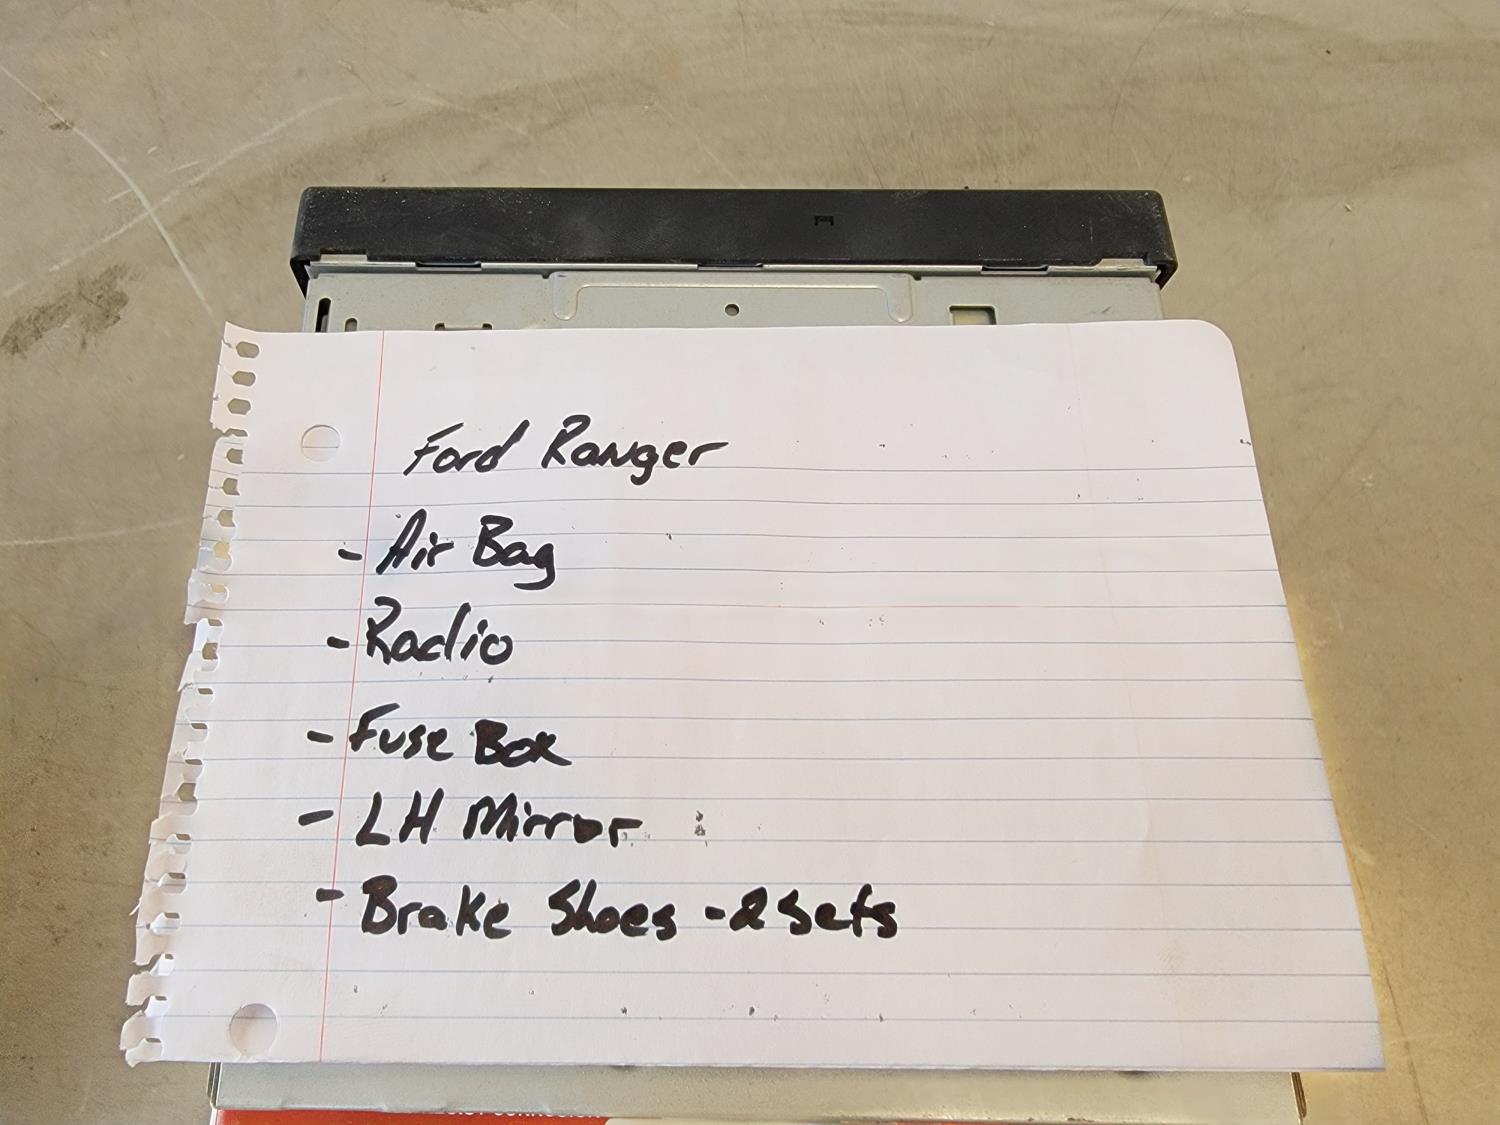 Ford Ranger
- Air Bag
- Radio
- Fuse Box
- LH Mirror
- Brake Shoes - 2 Sets